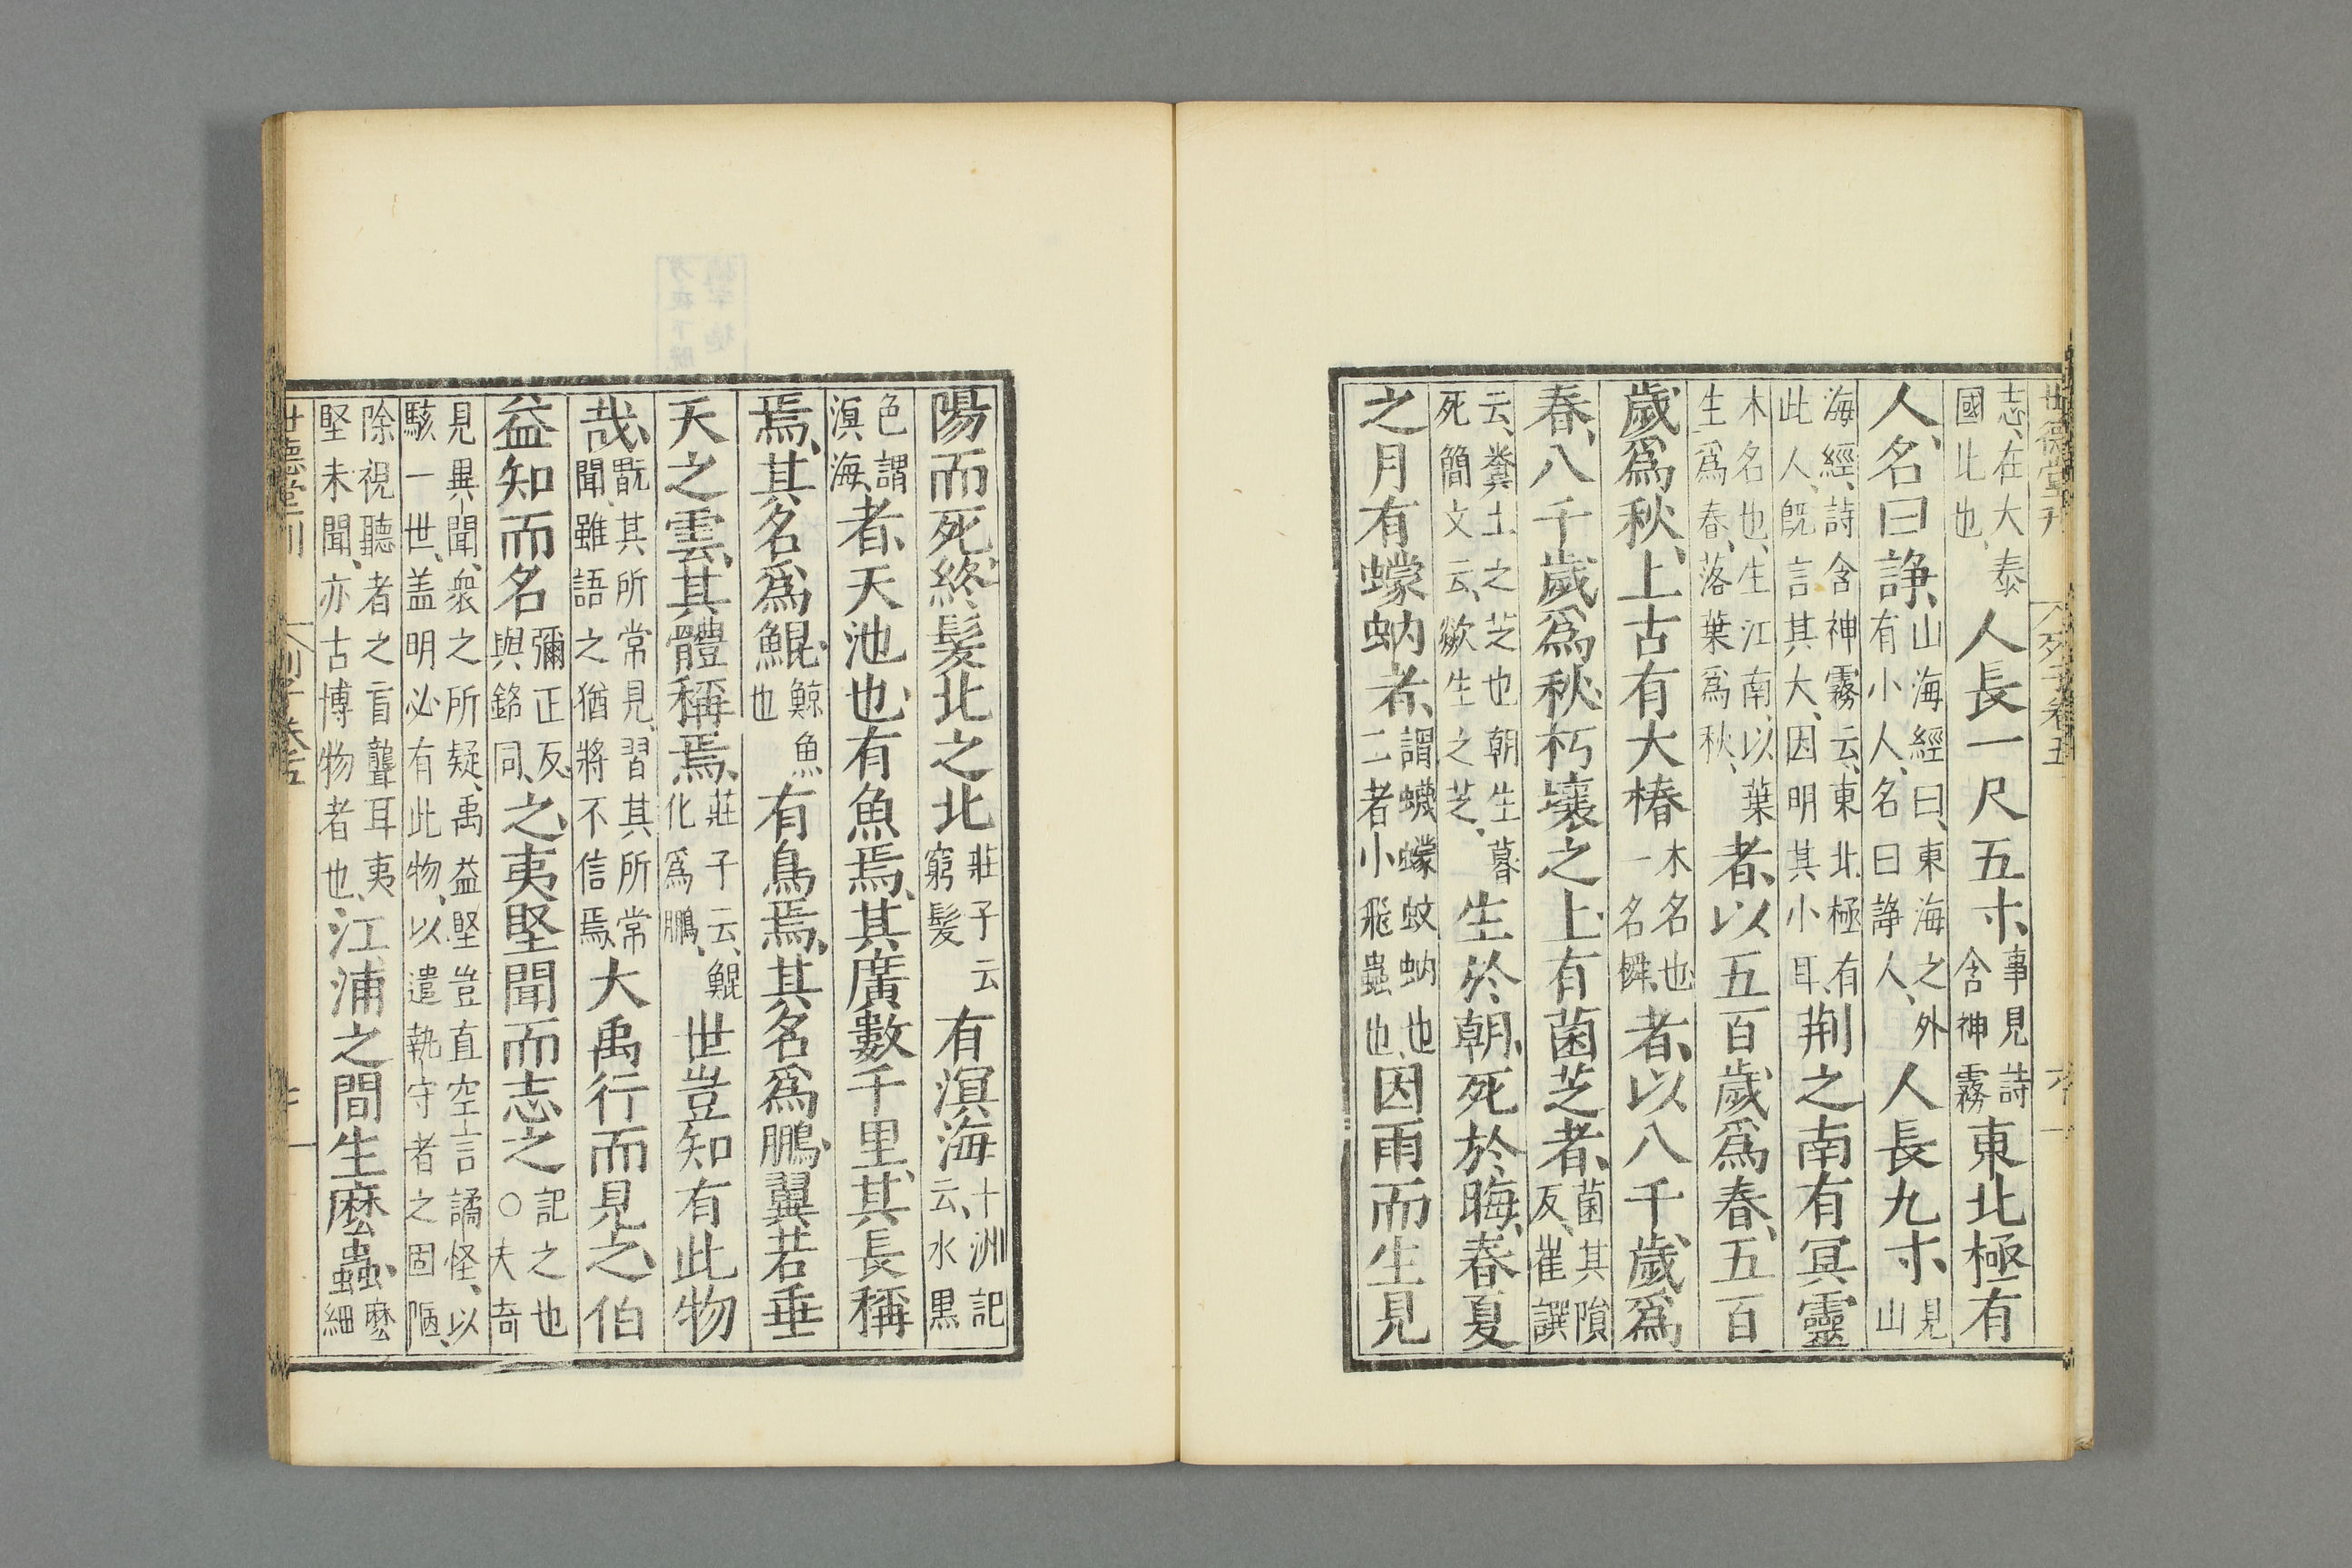 世德堂刊 列子卷五 六
志、在大泰國此也、人長一尺五寸、事見詩含神霧東北極有
人、名曰諍、山海經曰、東海之外有小人、名曰諍人、人長九寸、見山
海經、詩含神霧云、東北極有此人、既言其大、因明其小耳、荆之南有冥靈
木名也、生江南、以葉生爲春、落葉爲秋、者、以五百歲爲春、五百
歲爲秋、上古有大椿木名也、一名橓、者、以八千歲爲
春、八千歲爲秋、朽壤之上有菌芝者、菌其隕反、崔譔
云、糞土之芝也朝生暮死簡文云、歘生之芝、生於朝、死於晦、春夏
之月有蠓蚋者、謂蠛蠓蚊蚋也、二者小飛蟲也、因雨而生見
陽而死、終髮北之北莊子云窮髮有溟海十洲記云、水黑
色謂溟海、者、天池也、有魚焉、其廣數千里、其長稱
焉、其名爲鯤、鯨魚也有鳥焉、其名爲鵬、翼若垂
天之雲、其體稱焉、莊子云、鯤化爲鵬、世豈知有此物
哉、翫其所常見、習其所常聞、雖語之猶將不信焉、大禹行而見之、伯
益知而名彌正反、與銘同、之、夷堅聞而志之記之也○夫奇
見異聞、衆之所疑、禹益堅豈直空言譎怪、以駭一世、盖明必有此物、以遣執守者之固陋、
除視聽者之盲聾耳夷堅未聞、亦古博物者也、江浦之間生麽蟲、麽細
世德堂刊 列子卷五